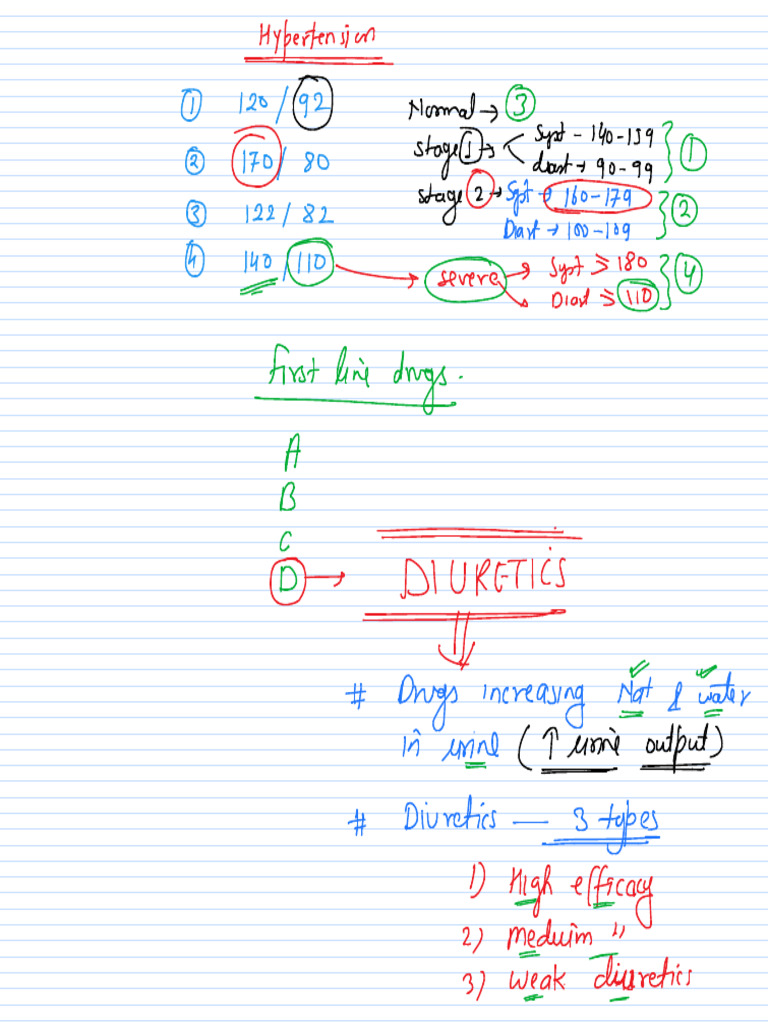 Hypertension
① 120 / 92
② 170 / 80
③ 122 / 82
④ 140 / 110
Normal → ③
Stage 1 → Syst - 140-159
Diast → 90-99
①
Stage 2 → Syst → 160-179
Diast → 100-109
②
→ severe → Syst ≥ 180
Diast ≥ 110
④
First line drugs.
A
B
C
D → DIURETICS
# Drugs increasing Na+ & water
in urine (↑ urine output)
# Diuretics — 3 types
1) High efficacy
2) Meduim "
3) Weak diuretics